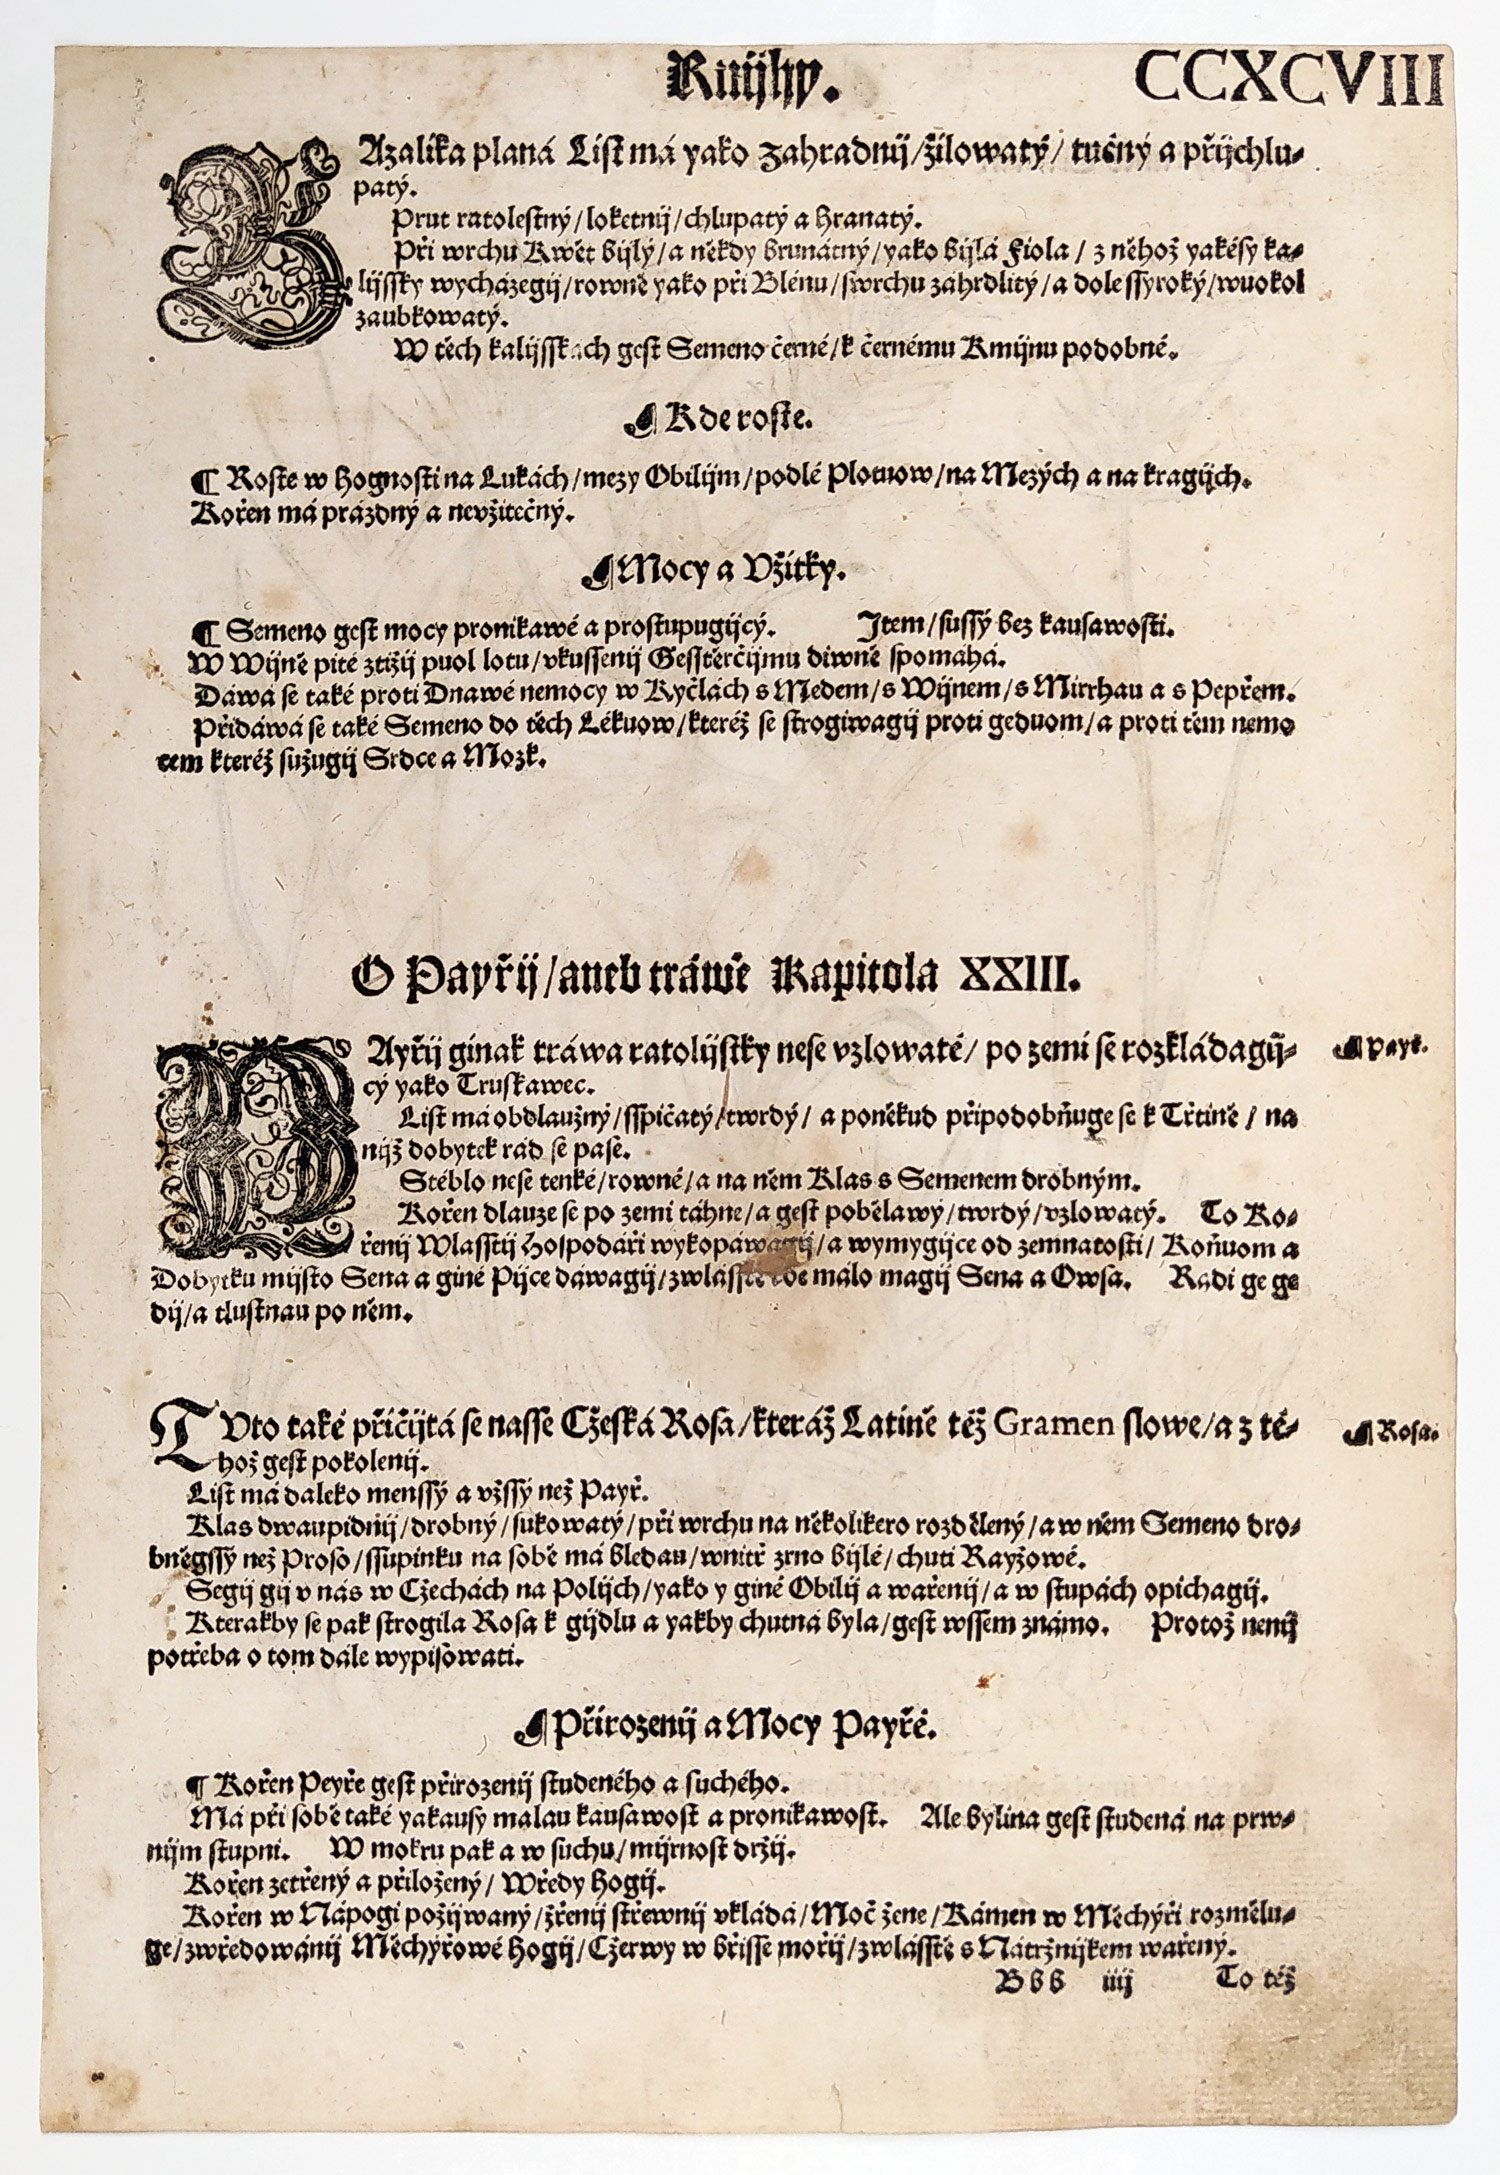 Knijhy.
CCXCVIII
BAzalika planá List má yako zahradnij/žilowatý/ tučný a přijchlu-
patý.
Prut ratolestný/loketnij/chlupatý a hranatý.
Při wrchu Kwět bijlý/a někdy brunátný/yako bijlá Fiola/ z něhož yakésy ka-
lijssky wycházegij/rowně yako při Blénu/swrchu záhrdlitý/a dole ssyroký/wuokol
zaubkowatý.
W těch kalijsskách gest Semeno černé/k černému Kmijnu podobné.
¶ Kde roste.
¶ Roste w hognosti na Lukách/mezy Obilijm/podlé Plotuow/na Mezých a na kragijch.
Kořen má prázdný a nevžitečný.
¶ Mocy a Vžitky.
¶ Semeno gest mocy pronikawé a prostupugijcý. Item/sussý bez kausawosti.
W Wijně pité ztižij puol lotu/vkussenij Gesstěrčijmu diwně spomáhá.
Dáwá se také proti Dnawé nemocy w Kyčlách s Medem/s Wijnem/s Mirrhau a s Pepřem.
Přidáwá se také Semeno do těch Lékuow/kteréž se strogiwagij proti geduom/a proti těm nemo
cem kteréž sužugij Srdce a Mozk.
O Payřij/aneb tráwě Kapitola XXIII.
PAyřij ginak tráwa ratolijstky nese vzlowaté/ po zemi se rozkládagij-
cý yako Truskawec.
¶ Payř.
List má obdlaužný/sspičatý/twrdý/ a poněkud připodobňuge se k Třtině/ na
nijž dobytek rád se pase.
Stéblo nese tenké/rowné/a na něm Klas s Semenem drobným.
Kořen dlauze se po zemi táhne/a gest pobělawý/twrdý/vzlowatý. To Ko-
řenij Wlasstij hospodáři wykopáwagij/a wymygijce od zemnatosti/ Koňuom a
Dobytku mijsto Sena a giné Pijce dáwagij/zwlásstě kde málo magij Sena a Owsa. Radi ge ge
dij/a tlustnau po něm.
TVto také přičijtá se nasse Cžeská Rosa/kteráž Latině též Gramen slowe/a z té-
hož gest pokolenij.
¶ Rosa.
List má daleko menssý a vžssý než Payř.
Klas dwaupidnij/drobný/sukowatý/při wrchu na několikero rozdělený/a w něm Semeno dro-
bněgssý než Proso/ssupinku na sobě má bledau/wnitř zrno bijlé/chuti Rayžowé.
Segij gij v nás w Cžechách na Polijch/yako y giné Obilij a wařenij/a w stupách opichagij.
Kterakby se pak strogila Rosa k gijdlu a yakby chutná byla/gest wssem známo. Protož nenij
potřeba o tom dále wypisowati.
¶ Přirozenij a Mocy Payřé.
¶ Kořen Peyře gest přirozenij studeného a suchého.
Má při sobě také yakausy malau kausawost a pronikawost. Ale bylina gest studená na prw-
nijm stupni. W mokru pak a w suchu/mijrnost držij.
Kořen zetřený a přiložený/ Wředy hogij.
Kořen w Nápogi požijwaný/žřenij střewnij vkládá/Moč žene/Kámen w Měchýři rozmělu-
ge/zwředowánij Měchýřowé hogij/Cžerwy w břisse mořij/zwlásstě s Nátržnijkem wařený.
Bbb iiij To též